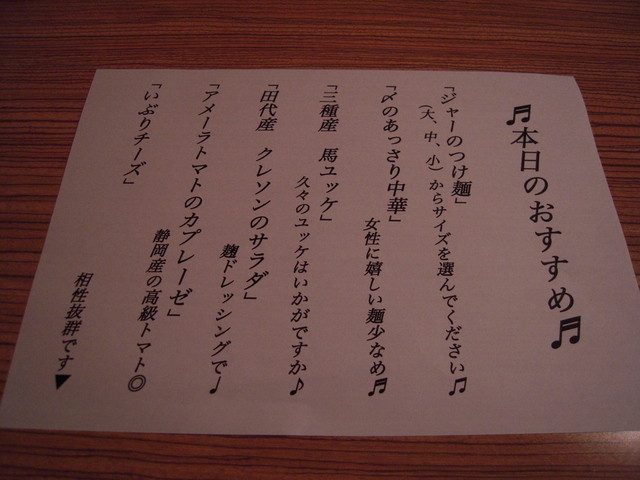 ♬本日のおすすめ♬
「ジャーのつけ麺」
(大、中、小)からサイズを選んでください♫
「〆のあっさり中華」
女性に嬉しい麺少なめ♬
「三種産 馬ユッケ」
久々のユッケはいかがですか♪
「田代産 クレソンのサラダ」
麹ドレッシングで♩
「アメーラトマトのカプレーゼ」
静岡産の高級トマト◎
「いぶりチーズ」
相性抜群です▼